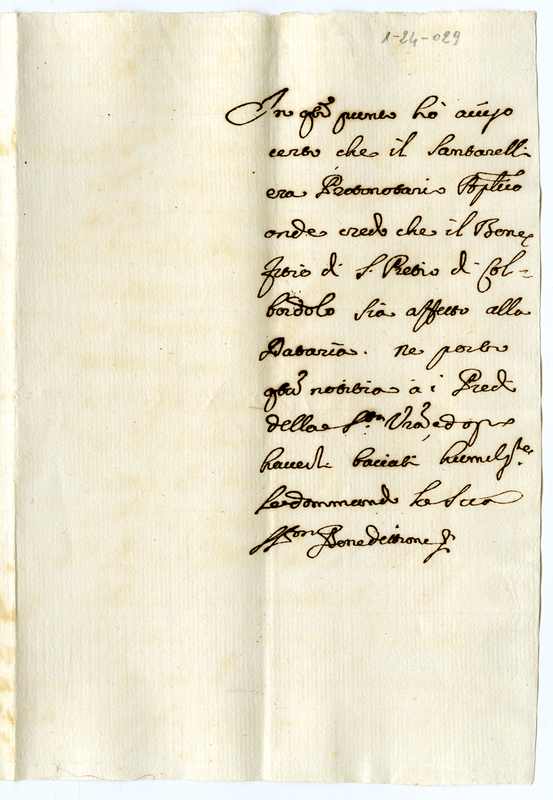 1-24-029
In q̃sto punto hò auiso
certo che il Santarelli
era Protonotario App̃lico
onde credo che il Bene,
fitio di S. Pietro di Col-
bordolo sia affetto alla
Dataria. ne porto
q̃sta notitia à i Piedi
della S.tà Vr̃a, ed op̃o
hauerli baciati humilss.te
le dommando la Sua
S.ma Benedittione